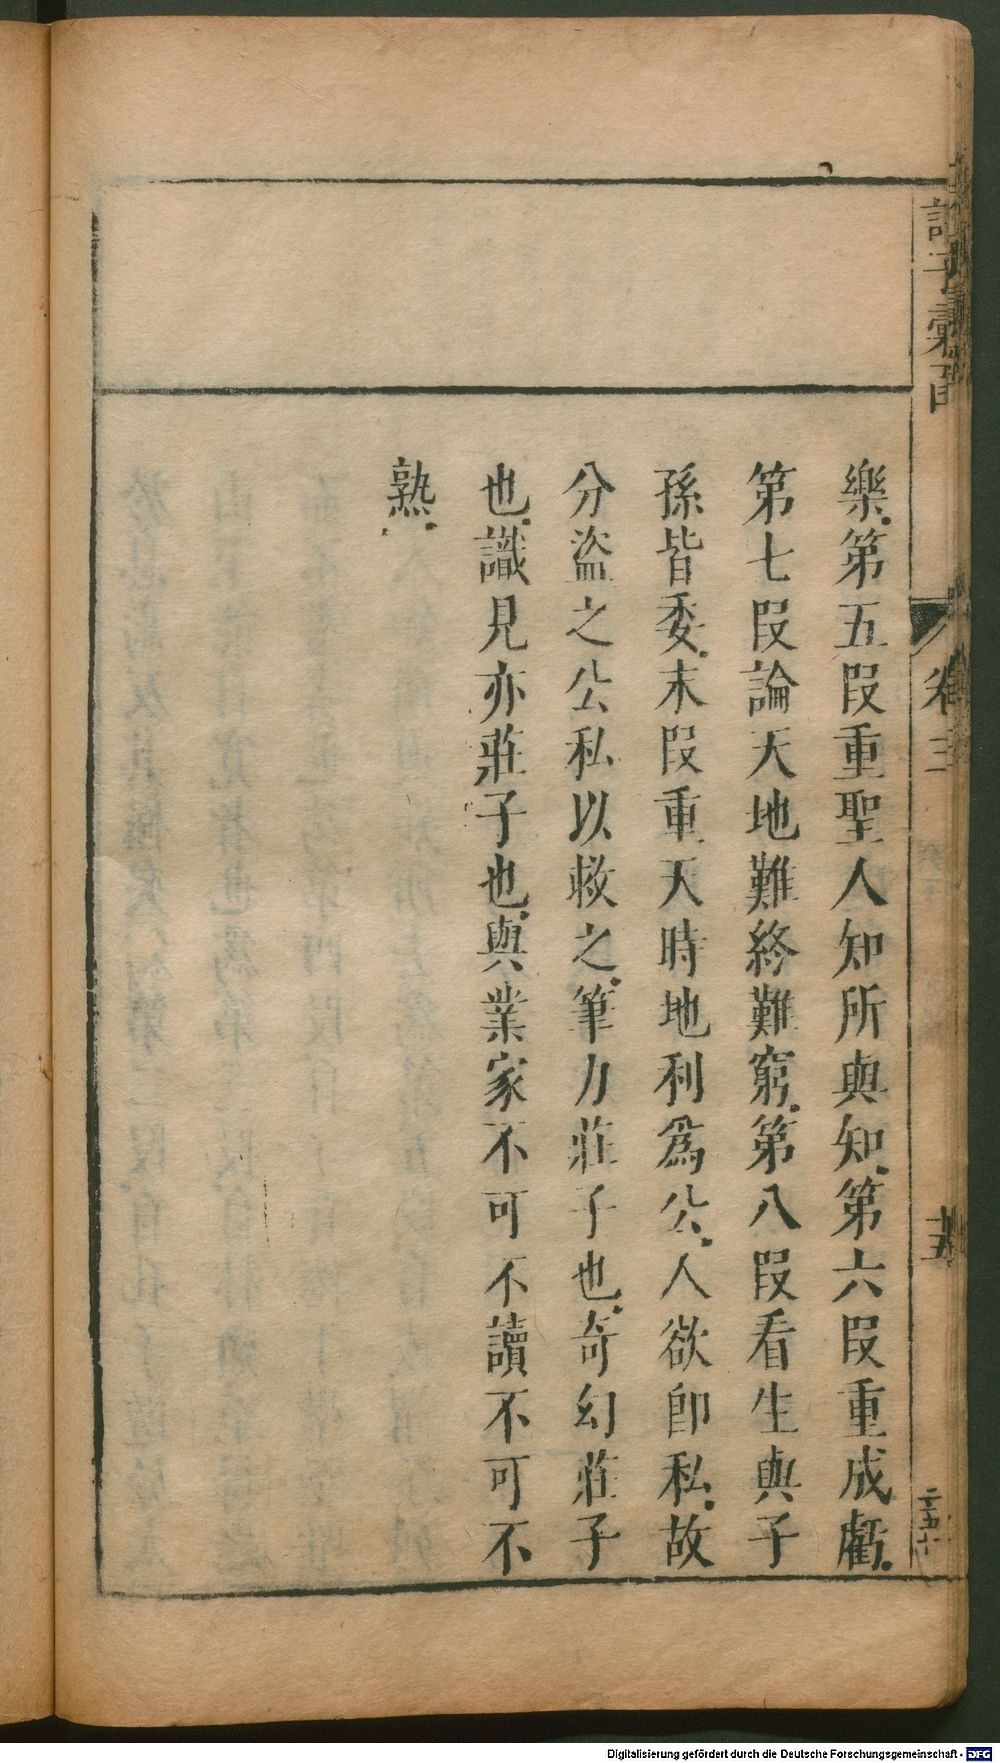 樂第五段重聖人知所與知第六段重成虧
第七段論天地難終難窮第八段看生與子
孫皆委末段重天時地利爲公人欲卽私故
分盜之公私以救之筆力莊子也奇幻莊子
也識見亦莊子也與業家不可不讀不可不
熟
卷三
Digitalisierung gefördert durch die Deutsche Forschungsgemeinschaft - DFG